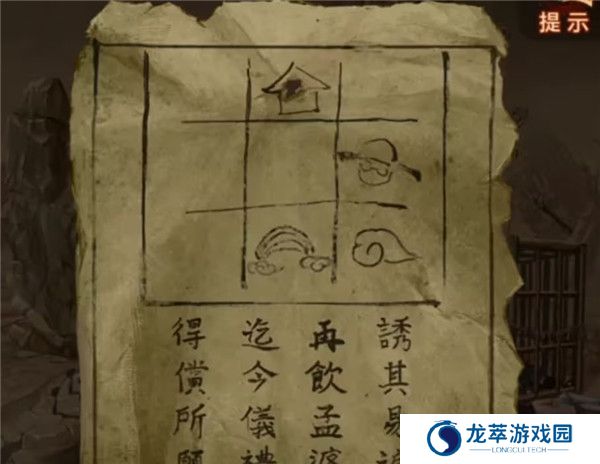 提示
誘其易
再飲孟婆
迄今儀禮
得償所願
龙萃游戏园
LONGCUITECH